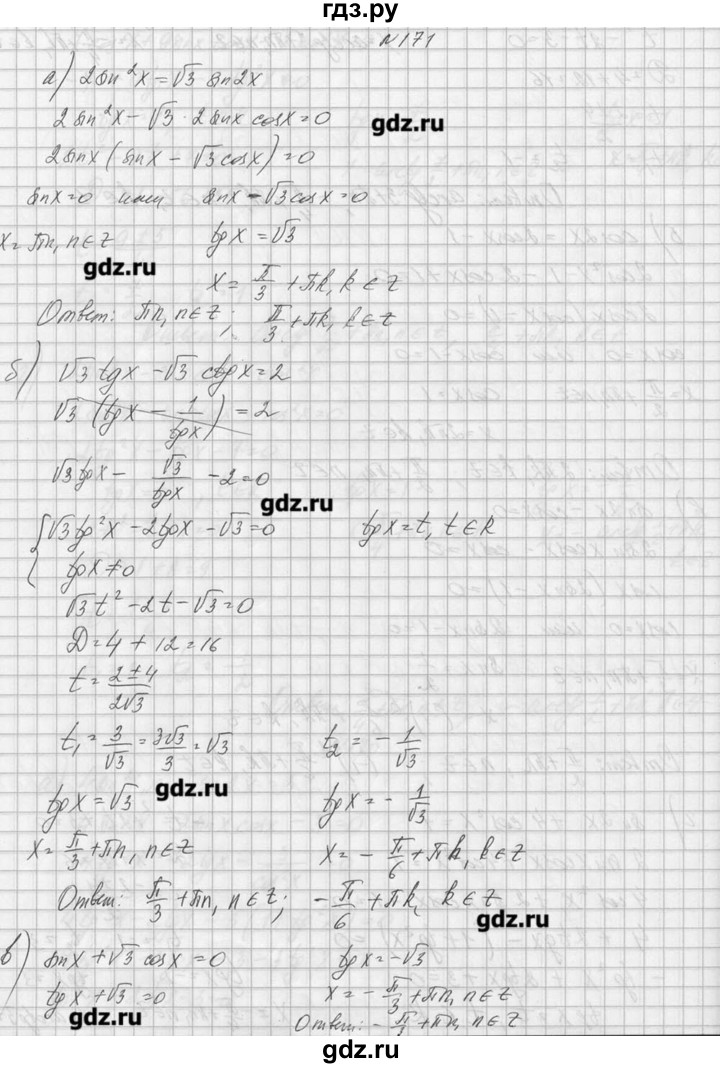 гдз.ру
№171
а) 2sin²x = √3 sin2x
2sin²x - √3 · 2sinx cosx = 0
gdz.ru
2sinx (sinx - √3 cosx) = 0
sinx = 0 или sinx - √3 cosx = 0
x = πn, n ∈ Z tgx = √3
gdz.ru
x = π/3 + πk, k ∈ Z
Ответ: πn, n ∈ Z; π/3 + πk, k ∈ Z
б) √3 tgx - √3 ctgx = 2
√3 (tgx - 1/tgx) = 2
√3 tgx - √3/tgx - 2 = 0
gdz.ru
{ √3 tg²x - 2tgx - √3 = 0 tgx = t, t ∈ R
tgx ≠ 0
√3 t² - 2t - √3 = 0
D = 4 + 12 = 16
t = 2±4/2√3
t₁ = 3/√3 = 3√3/3 = √3 t₂ = - 1/√3
gdz.ru
tgx = √3 tgx = - 1/√3
x = π/3 + πn, n ∈ Z x = - π/6 + πk, k ∈ Z
Ответ: π/3 + πn, n ∈ Z; - π/6 + πk, k ∈ Z
gdz.ru
в) sinx + √3 cosx = 0 tgx = -√3
tgx + √3 = 0 x = - π/3 + πn, n ∈ Z
gdz.ru
Ответ: - π/ + πn, n ∈ Z
gdz.ru